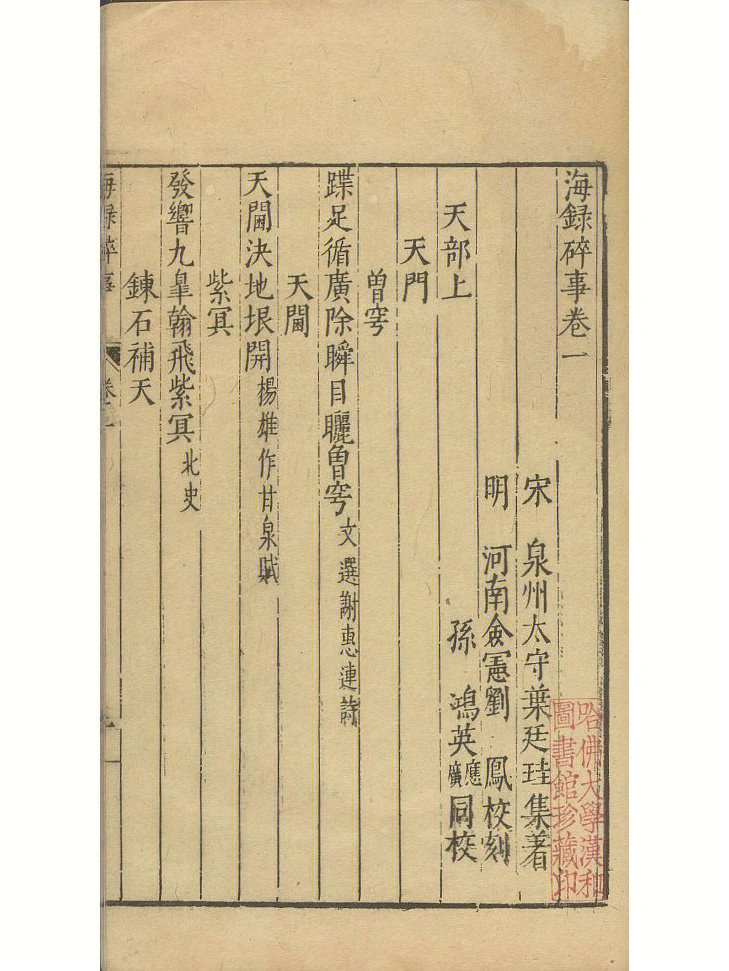 海録碎事卷一
宋 泉州太守葉廷珪集著
明 河南僉憲劉 鳳校刻
孫 鴻英應廣同校
天部上
天門
曾穹
蹀足循廣除瞬目矖曾穹文選謝惠連詩
天閫
天閫決地垠開楊雄作甘泉賦
紫冥
發響九皐翰飛紫冥北史
鍊石補天
海録碎事 卷一
哈佛大學漢和
圖書館珍藏印